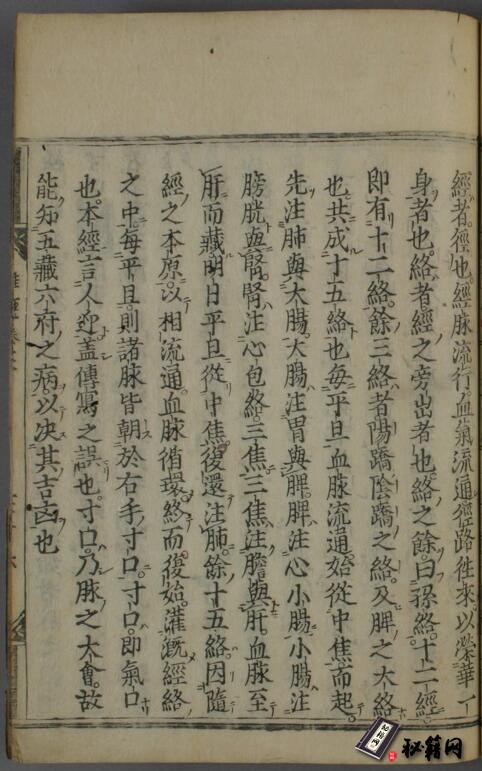 經者徑也經脉流行血氣流通徑路徃來以榮華一
身者也絡者經之旁出者也絡之餘曰孫絡十二經
即有十二絡餘三絡者陽蹻陰蹻之絡及脾之大絡
也共成十五絡也每平旦血脉流通始從中焦而起
先注肺與大腸大腸注胃與脾脾注心小腸小腸注
膀胱與腎腎注心包絡三焦三焦注膽與肝血脉至
肝而藏明日平旦從中焦復還注肺餘十五絡因隨
經之本原以相流通血脉循環終而復始灌溉經絡
之中每平旦則諸脉皆朝於右手寸口寸口即氣口
也本經言人迎蓋傳寫之誤也寸口乃脉之大會故
能知五藏六府之病以决其吉凶也
秘籍网